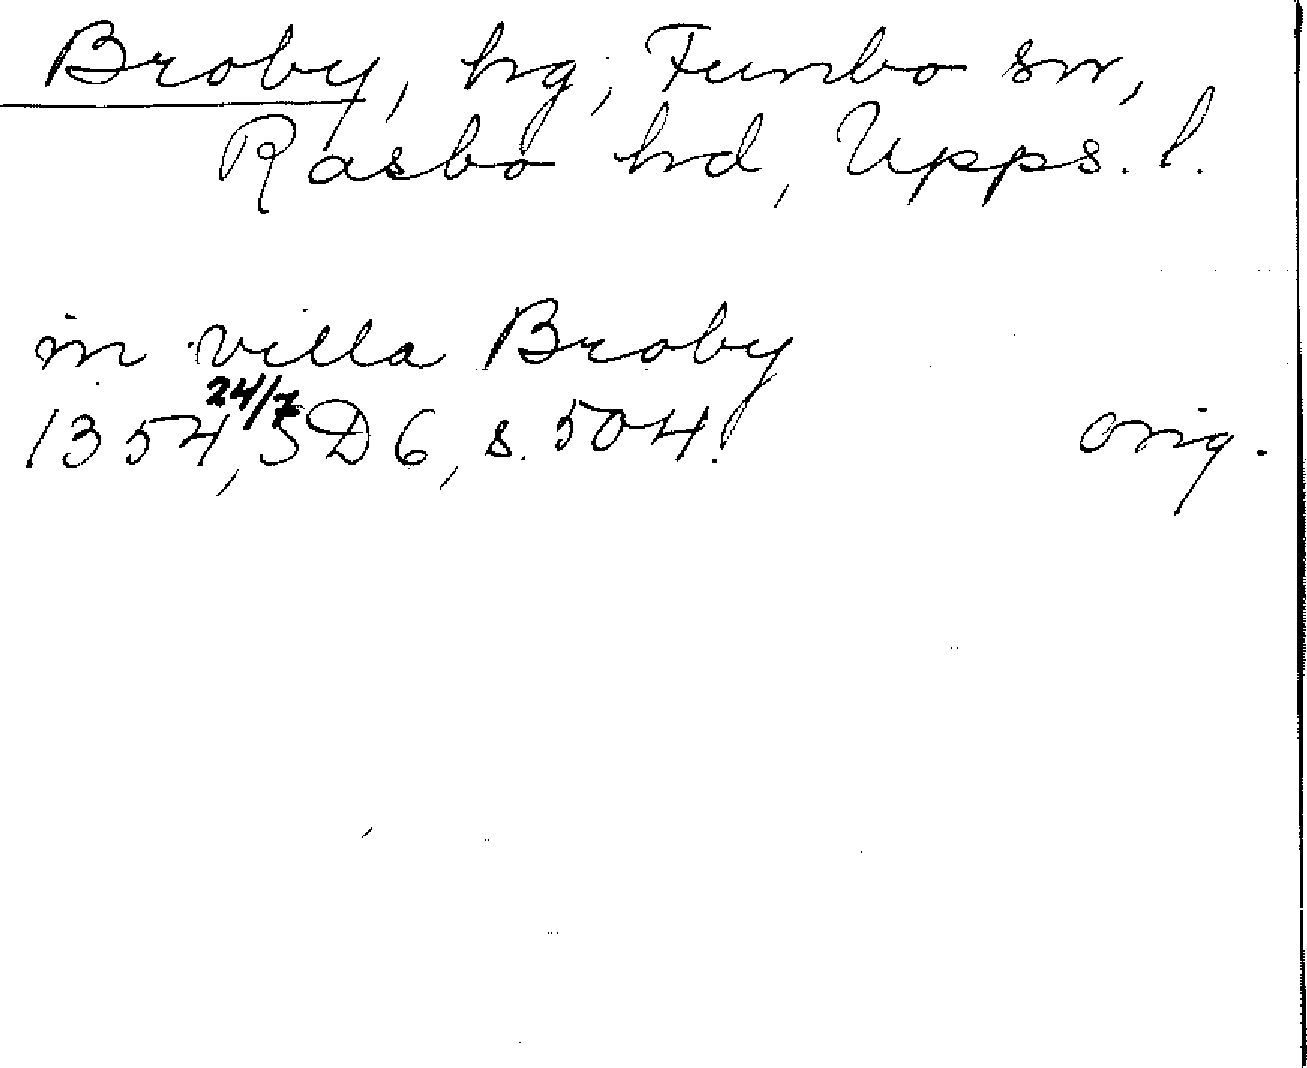 Broby, hg, Funbo sn,
Rasbo hd, Upps. l.
in villa Broby
1354 24/7, SD 6, s. 504. orig.